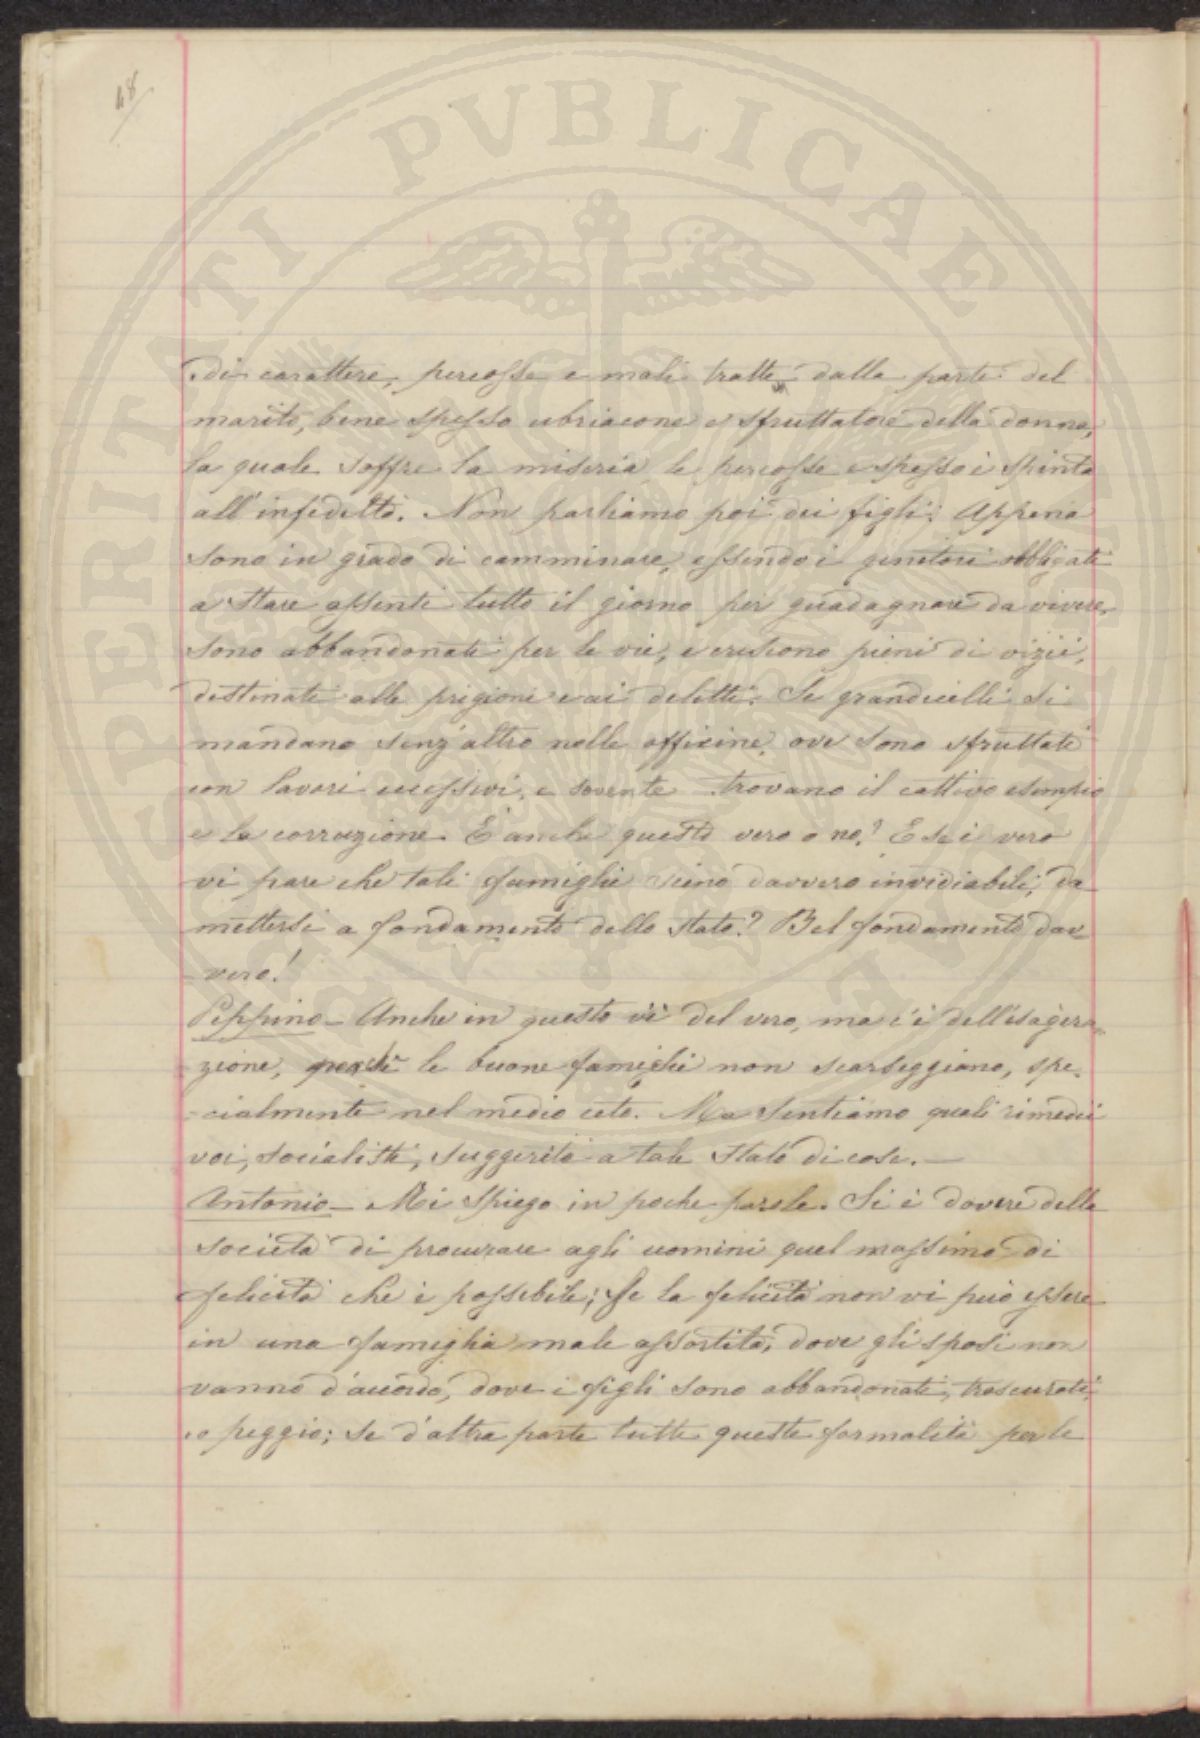 48
PROSPERITATI PUBLICAE
di carattere, percosse e mali tratti dalla parte del
marito, bene spesso ubriacone e sfruttatore della donna,
la quale soffre la miseria, le percosse e spesso è spinta
all'infedeltà. Non parliamo poi dei figli. Appena
sono in grado di camminare, essendo i genitori obbligati
a stare assenti tutto il giorno per guadagnare da vivere,
sono abbandonati per le vie, e crescono pieni di vizii,
destinati alle prigioni e ai delitti. Se grandicelli si
mandano senz'altro nelle officine, ove sono sfruttati
con lavori eccessivi, e sovente trovano il cattivo esempio
e la corruzione. È anche questo vero o no? E se è vero
vi pare che tali famiglie sieno davvero invidiabili, da
mettersi a fondamento dello Stato? Bel fondamento dav-
vero!
Peppino – Anche in questo vi è del vero, ma c'è dell'esagera-
zione, perchè le buone famiglie non scarseggiano, spe-
cialmente nel medio ceto. Ma sentiamo quali rimedii
voi, socialisti, suggerite a tale stato di cose. —
Antonio – Mi spiego in poche parole. Si è dovere della
società di procurare agli uomini quel massimo di
felicità che è possibile; se la felicità non vi può essere
in una famiglia male assortita, dove gli sposi non
vanno d'accordo, dove i figli sono abbandonati, trascurati,
o peggio; se d'altra parte tutte queste formalità per le